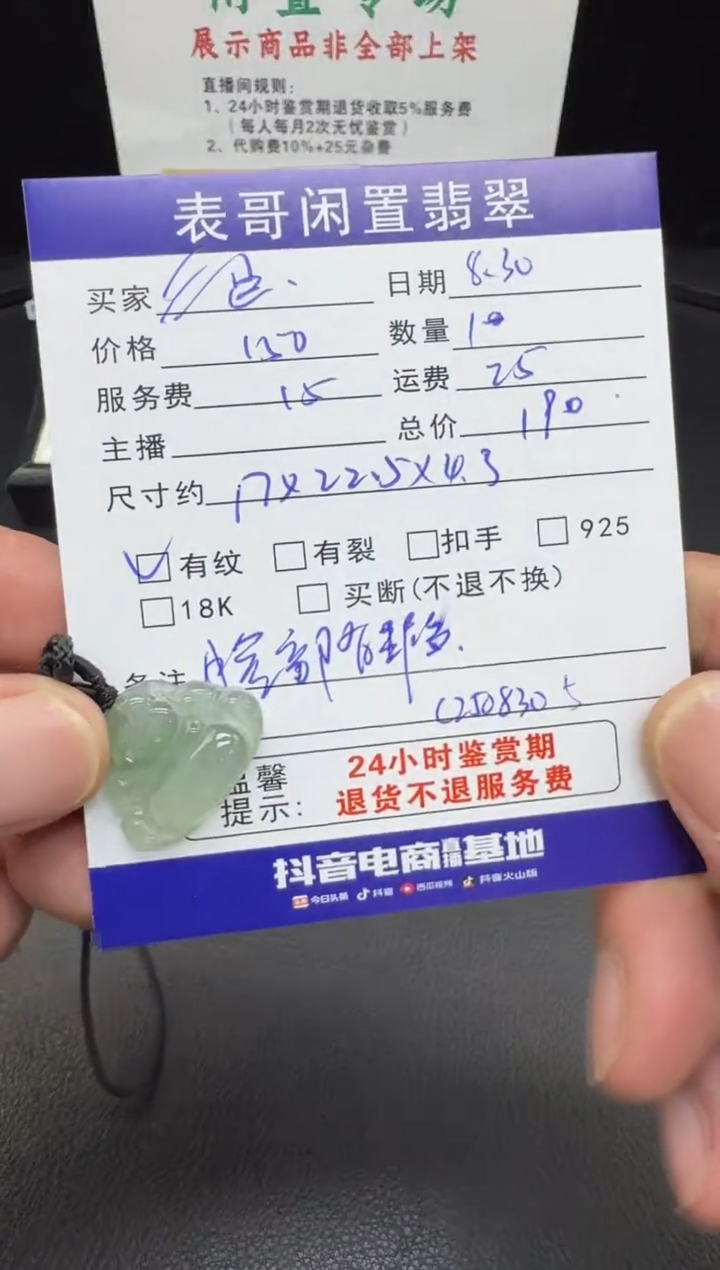 闲置专场
展示商品非全部上架
直播间规则:
1、24小时鉴赏期退货收取5%服务费
(每人每月2次无忧鉴赏)
2、代购费10%+25元杂费
表哥闲置翡翠
买家 日期 8.30
价格 150 数量 1
服务费 15 运费 25
主播 总价 190
尺寸约 17x22.5x4.3
有纹 有裂 扣手 925
18K 买断(不退不换)
备注
C250830 5
温馨 24小时鉴赏期
提示: 退货不退服务费
抖音电商直播基地
今日头条 抖音 西瓜视频 抖音火山版